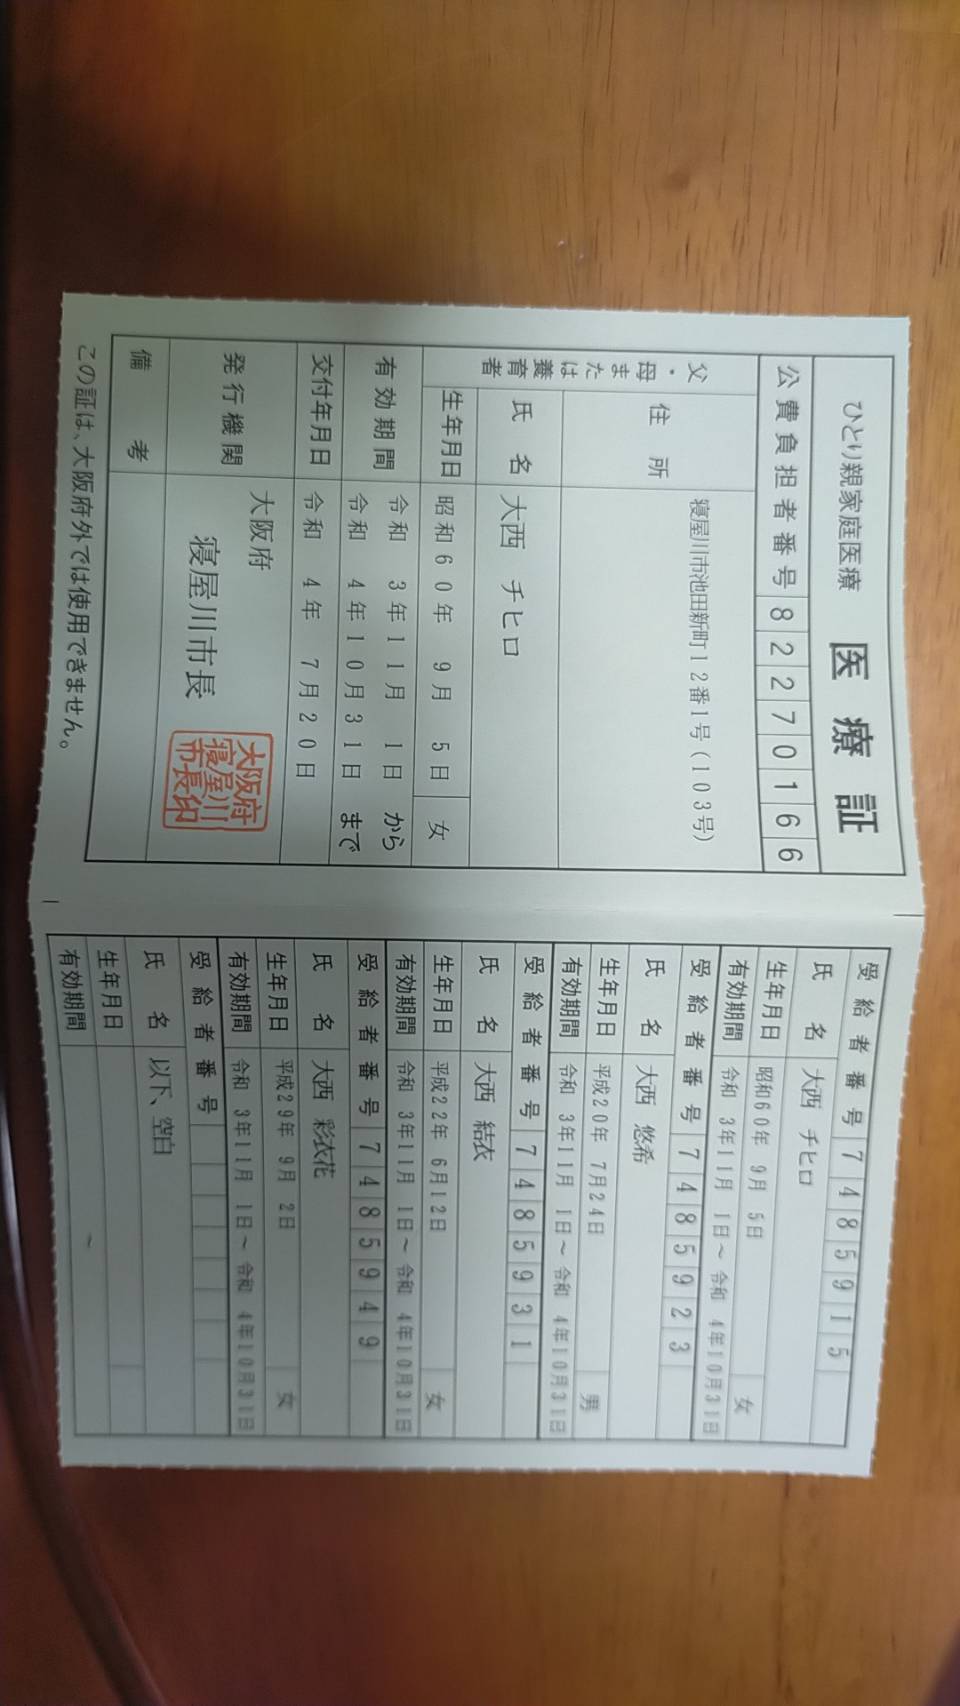 ひとり親家庭医療 医療証
公費負担者番号 8 2 2 7 0 1 6 6
父・母または養育者
住所 寝屋川市池田新町12番1号(103号)
氏名 大西 チヒロ
生年月日 昭和60年 9月 5日 女
有効期間 令和 3年11月 1日 から
令和 4年10月31日 まで
交付年月日 令和 4年 7月20日
発行機関 大阪府
寝屋川市長
大阪府
寝屋川
市長印
備考
この証は、大阪府外では使用できません。
受給者番号 7 4 8 5 9 1 5
氏名 大西 チヒロ
生年月日 昭和60年 9月 5日 女
有効期間 令和 3年11月 1日～令和 4年10月31日
受給者番号 7 4 8 5 9 2 3
氏名 大西 悠希
生年月日 平成20年 7月24日 男
有効期間 令和 3年11月 1日～令和 4年10月31日
受給者番号 7 4 8 5 9 3 1
氏名 大西 結衣
生年月日 平成22年 6月12日 女
有効期間 令和 3年11月 1日～令和 4年10月31日
受給者番号 7 4 8 5 9 4 9
氏名 大西 彩衣花
生年月日 平成29年 9月 2日 女
有効期間 令和 3年11月 1日～令和 4年10月31日
受給者番号
氏名 以下、空白
生年月日
有効期間 ～